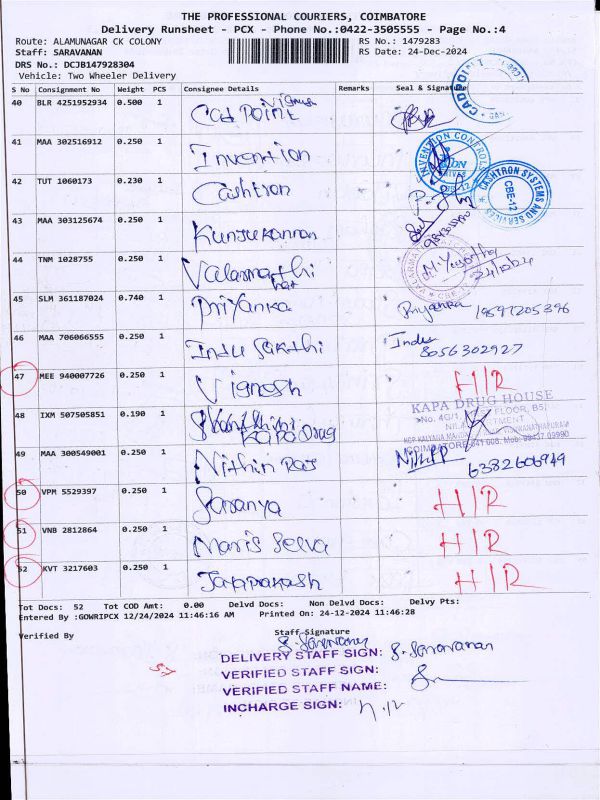 THE PROFESSIONAL COURIERS, COIMBATORE
Delivery Runsheet - PCX - Phone No.:0422-3505555 - Page No.:4
Route: ALAMUNAGAR CK COLONY
RS No.: 1479283
Staff: SARAVANAN
RS Date: 24-Dec-2024
DRS No.: DCJB147928304
Vehicle: Two Wheeler Delivery
S No Consignment No Weight PCS Consignee Details Remarks Seal & Signature
40 BLR 4251952934 0.500 1 Cad Point
CADD POINT
41 MAA 302516912 0.250 1 Invention
INVENTION CONTROL
42 TUT 1060173 0.230 1 Cashtron
CASHTRON SYSTEMS AND SERVICES
CBE-12
43 MAA 303125674 0.250 1 Kunjukannan
44 TNM 1028755 0.250 1 Valarmathi
45 SLM 361187024 0.740 1 Priyanka Priyanka
46 MAA 706066555 0.250 1 Indu Sakthi Indu
8056302927
47 MEE 940007726 0.250 1 Vignesh H/R
KAPA DRUG HOUSE
48 IXM 507505851 0.190 1 Kapa Drug
49 MAA 300549001 0.250 1 Nithin Raj 6382606949
50 VPM 5529397 0.250 1 Saranya H/R
51 VNB 2812864 0.250 1 Maris Selva H/R
52 KVT 3217603 0.250 1 Jayaprakash H/R
Tot Docs: 52 Tot COD Amt: 0.00 Delvd Docs: Non Delvd Docs: Delvy Pts:
Entered By :GOWRIPCX 12/24/2024 11:46:16 AM Printed On: 24-12-2024 11:46:28
Verified By Staff Signature
S. Saravanan
DELIVERY STAFF SIGN: S. Saravanan
VERIFIED STAFF SIGN:
VERIFIED STAFF NAME:
INCHARGE SIGN: